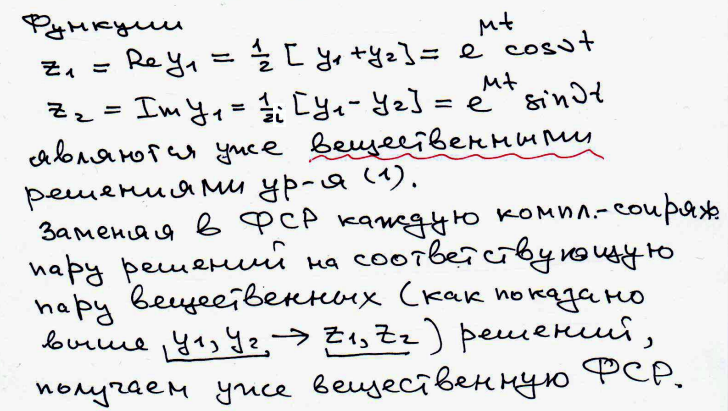 Функции
z₁ = Re y₁ = 1/2 [y₁+y₂] = e^{μt} cos νt
z₂ = Im y₁ = 1/2i [y₁-y₂] = e^{μt} sin νt
являются уже вещественными
решениями ур-я (1).
Заменяя в ФСР каждую компл.-сопряж.
пару решений на соответствующую
пару вещественных (как показано
выше y₁, y₂, → z₁, z₂) решений,
получаем уже вещественную ФСР.